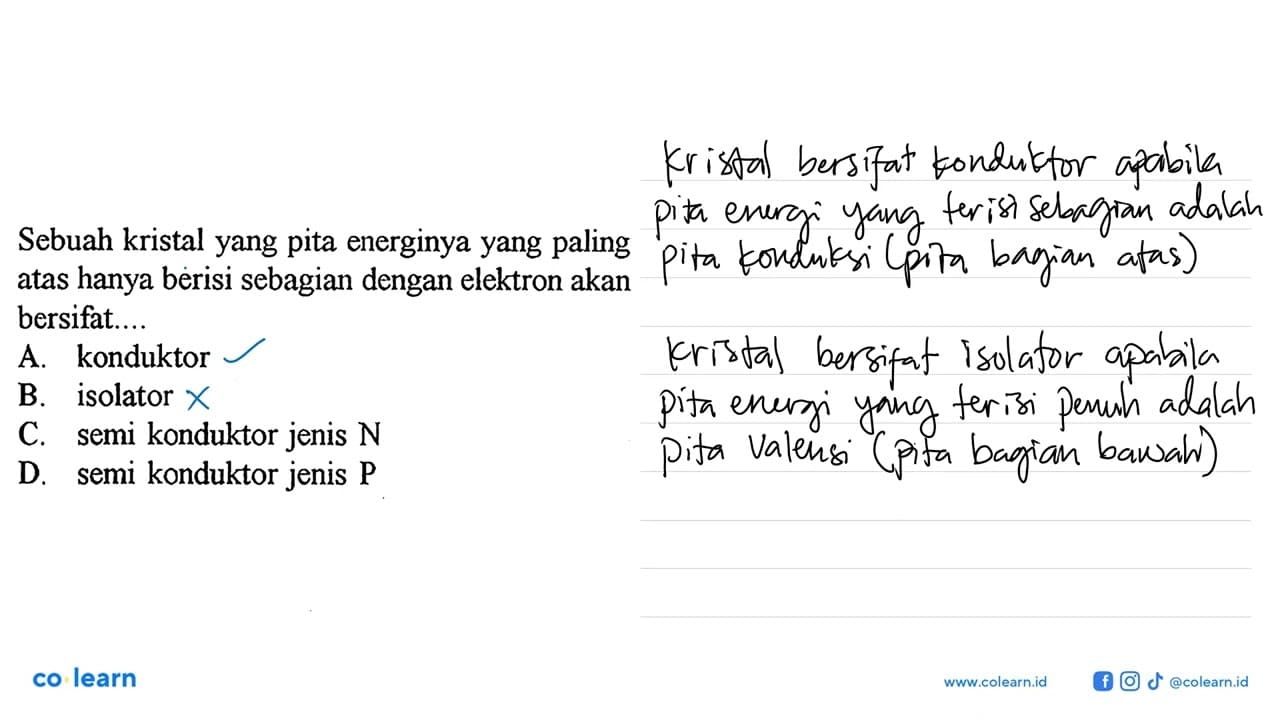 Sebuah kristal yang pita energinya yang paling
atas hanya berisi sebagian dengan elektron akan
bersifat....
A. konduktor
B. isolator
C. semi konduktor jenis N
D. semi konduktor jenis P
Kristal bersifat konduktor apabila
pita energi yang terisi sebagian adalah
pita konduksi (pita bagian atas)
Kristal bersifat isolator apabila
pita energi yang terisi penuh adalah
pita valensi (pita bagian bawah)
co learn
www.colearn.id
@colearn.id